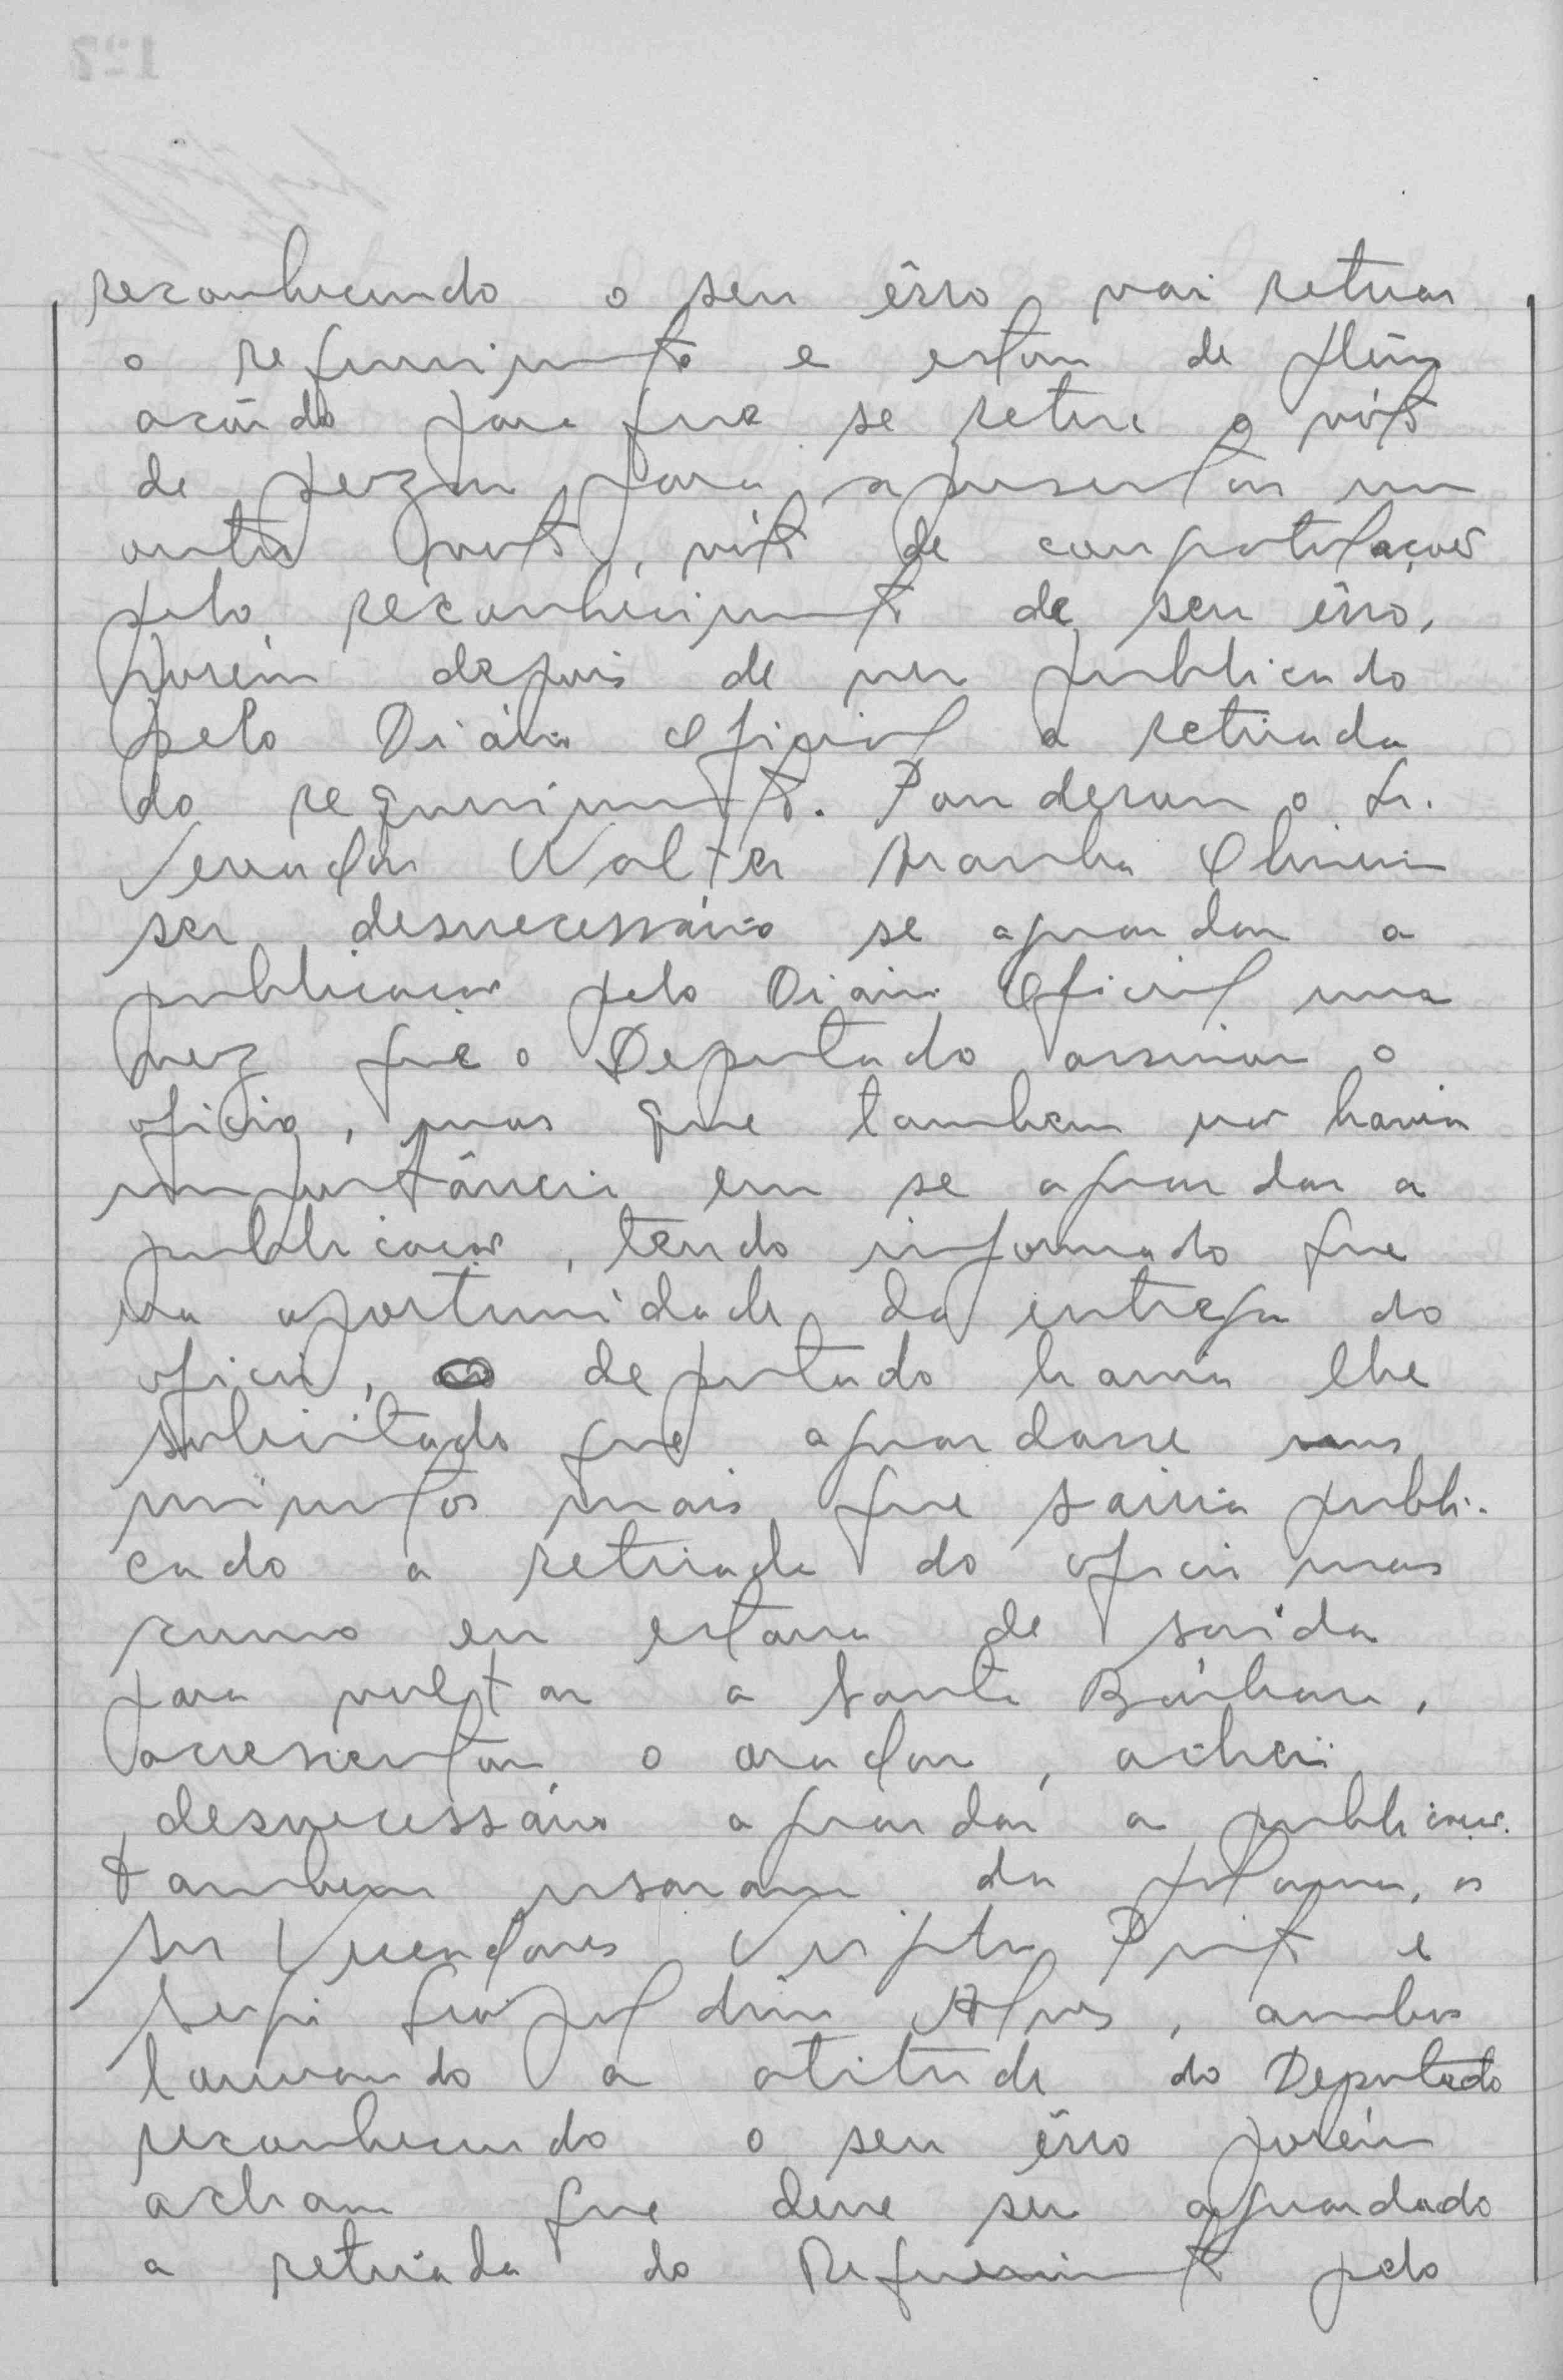 reconhecendo o seu êrro, vai retirar
o requerimento e estou de pleno
acôrdo para que se retire o vóto
de pezar para apresentar um
outro voto, vóto de congratulações
pelo reconhecimento de seu êrro,
porém depois de ser publicado
pelo Diário Oficial a retirada
do requerimento. Ponderou o Sr.
Vereador Walter Aranha Oliveira
ser desnecessário se aguardar a
publicação pelo Diario Oficial uma
vez que o Deputado assinou o
oficio, mas que tambem não havia
importância em se aguardar a
publicação, tendo informado que
na oportunidade da entrega do
oficio, o deputado havia lhe
solicitado que aguardasse uns
minutos mais que sairia publi-
cado a retirada do oficio mas
como eu estava de saida
para voltar a Santa Bárbara,
acrescentou o orador, achei
desnecessário aguardar a publicação.
Tambem usaram da palavra, os
Srs Vereadores
Alves, ambos
louvando a atitude do Deputado
reconhecendo o seu êrro porém
acham que deve ser aguardado
a retirada do Requerimento pelo